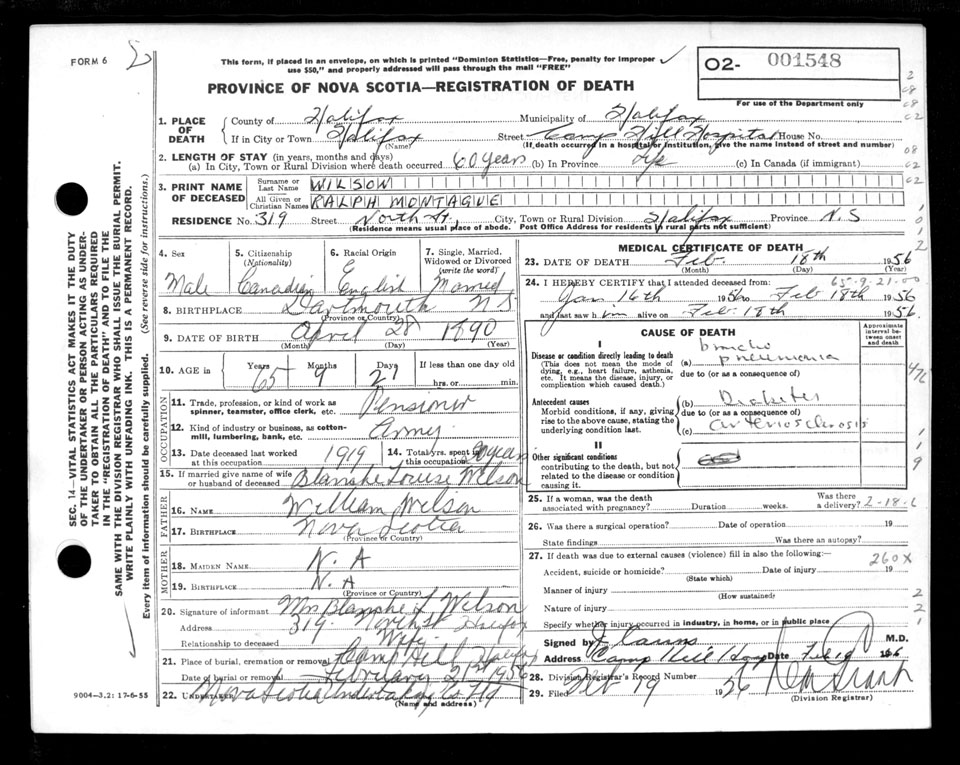 FORM 6
This form, if placed in an envelope, on which is printed "Dominion Statistics—Free, penalty for improper
use $50," and properly addressed will pass through the mail "FREE"
PROVINCE OF NOVA SCOTIA—REGISTRATION OF DEATH
O2- 001548
For use of the Department only
1. PLACE OF DEATH
County of Halifax Municipality of Halifax
If in City or Town Halifax Street Camp Hill Hospital House No.
(Name) (If death occurred in a hospital or institution, give the name instead of street and number)
2. LENGTH OF STAY (in years, months and days)
(a) In City, Town or Rural Division where death occurred 60 years (b) In Province life (c) In Canada (if immigrant)
3. PRINT NAME OF DECEASED
Surname or Last Name WILSON
All Given or Christian Names RALPH MONTAGUE
RESIDENCE No. 319 Street North St. City, Town or Rural Division Halifax Province N.S
(Residence means usual place of abode. Post Office Address for residents in rural parts not sufficient)
4. Sex Male
5. Citizenship (Nationality) Canadian
6. Racial Origin English
7. Single, Married, Widowed or Divorced (write the word) Married
8. BIRTHPLACE Dartmouth N S
(Province or Country)
9. DATE OF BIRTH April 28 1890
(Month) (Day) (Year)
10. AGE in Years 65 Months 9 Days 21 If less than one day old hrs. or min.
OCCUPATION
11. Trade, profession, or kind of work as spinner, teamster, office clerk, etc. Pensioner
12. Kind of industry or business, as cotton-mill, lumbering, bank, etc. Army
13. Date deceased last worked at this occupation 1919
14. Total yrs. spent in this occupation years
15. If married give name of wife or husband of deceased Blanche Louise Wilson
FATHER
16. NAME William Wilson
17. BIRTHPLACE Nova Scotia
(Province or Country)
MOTHER
18. MAIDEN NAME N. A
19. BIRTHPLACE N. A
(Province or Country)
20. Signature of informant Mrs Blanche L Wilson
Address 319 North St Halifax
Relationship to deceased Wife
21. Place of burial, cremation or removal Camp Hill Halifax
Date of burial or removal February 21st 1956
22. UNDERTAKER Nova Scotia Undertaking Co.
(Name and address)
9004—3.2: 17-6-55
MEDICAL CERTIFICATE OF DEATH
23. DATE OF DEATH Feb. 18th 1956
(Month) (Day) (Year)
24. I HEREBY CERTIFY that I attended deceased from: 65-9-21-00
Jan 16th 1956 to Feb 18th 1956
and last saw him alive on Feb 18th 1956.
CAUSE OF DEATH
Approximate interval between onset and death
I
Disease or condition directly leading to death
(This does not mean the mode of dying, e.g., heart failure, asthenia, etc. It means the disease, injury, or complication which caused death.)
(a) broncho pneumonia
due to (or as a consequence of)
Antecedent causes
Morbid conditions, if any, giving rise to the above cause, stating the underlying condition last.
(b) Diabetes
due to (or as a consequence of)
(c) arteriosclerosis
II
Other significant conditions
contributing to the death, but not related to the disease or condition causing it.
25. If a woman, was the death associated with pregnancy? Duration weeks Was there a delivery?
26. Was there a surgical operation? Date of operation 19
State findings Was there an autopsy?
27. If death was due to external causes (violence) fill in also the following:—
260X
Accident, suicide or homicide? Date of injury 19
(State which)
Manner of injury
(How sustained)
Nature of injury
Specify whether injury occurred in industry, in home, or in public place
Signed by M.D.
Address Camp Hill Hosp Date Feb 19 1956
28. Division Registrar's Record Number
29. Filed Feb 19 1956
(Division Registrar)
SEC. 14—VITAL STATISTICS ACT MAKES IT THE DUTY
OF THE UNDERTAKER OR PERSON ACTING AS UNDER-
TAKER TO OBTAIN ALL THE PARTICULARS REQUIRED
IN THE "REGISTRATION OF DEATH" AND TO FILE THE
SAME WITH THE DIVISION REGISTRAR WHO SHALL ISSUE THE BURIAL PERMIT.
WRITE PLAINLY WITH UNFADING INK. THIS IS A PERMANENT RECORD.
Every item of information should be carefully supplied. (See reverse side for instructions.)